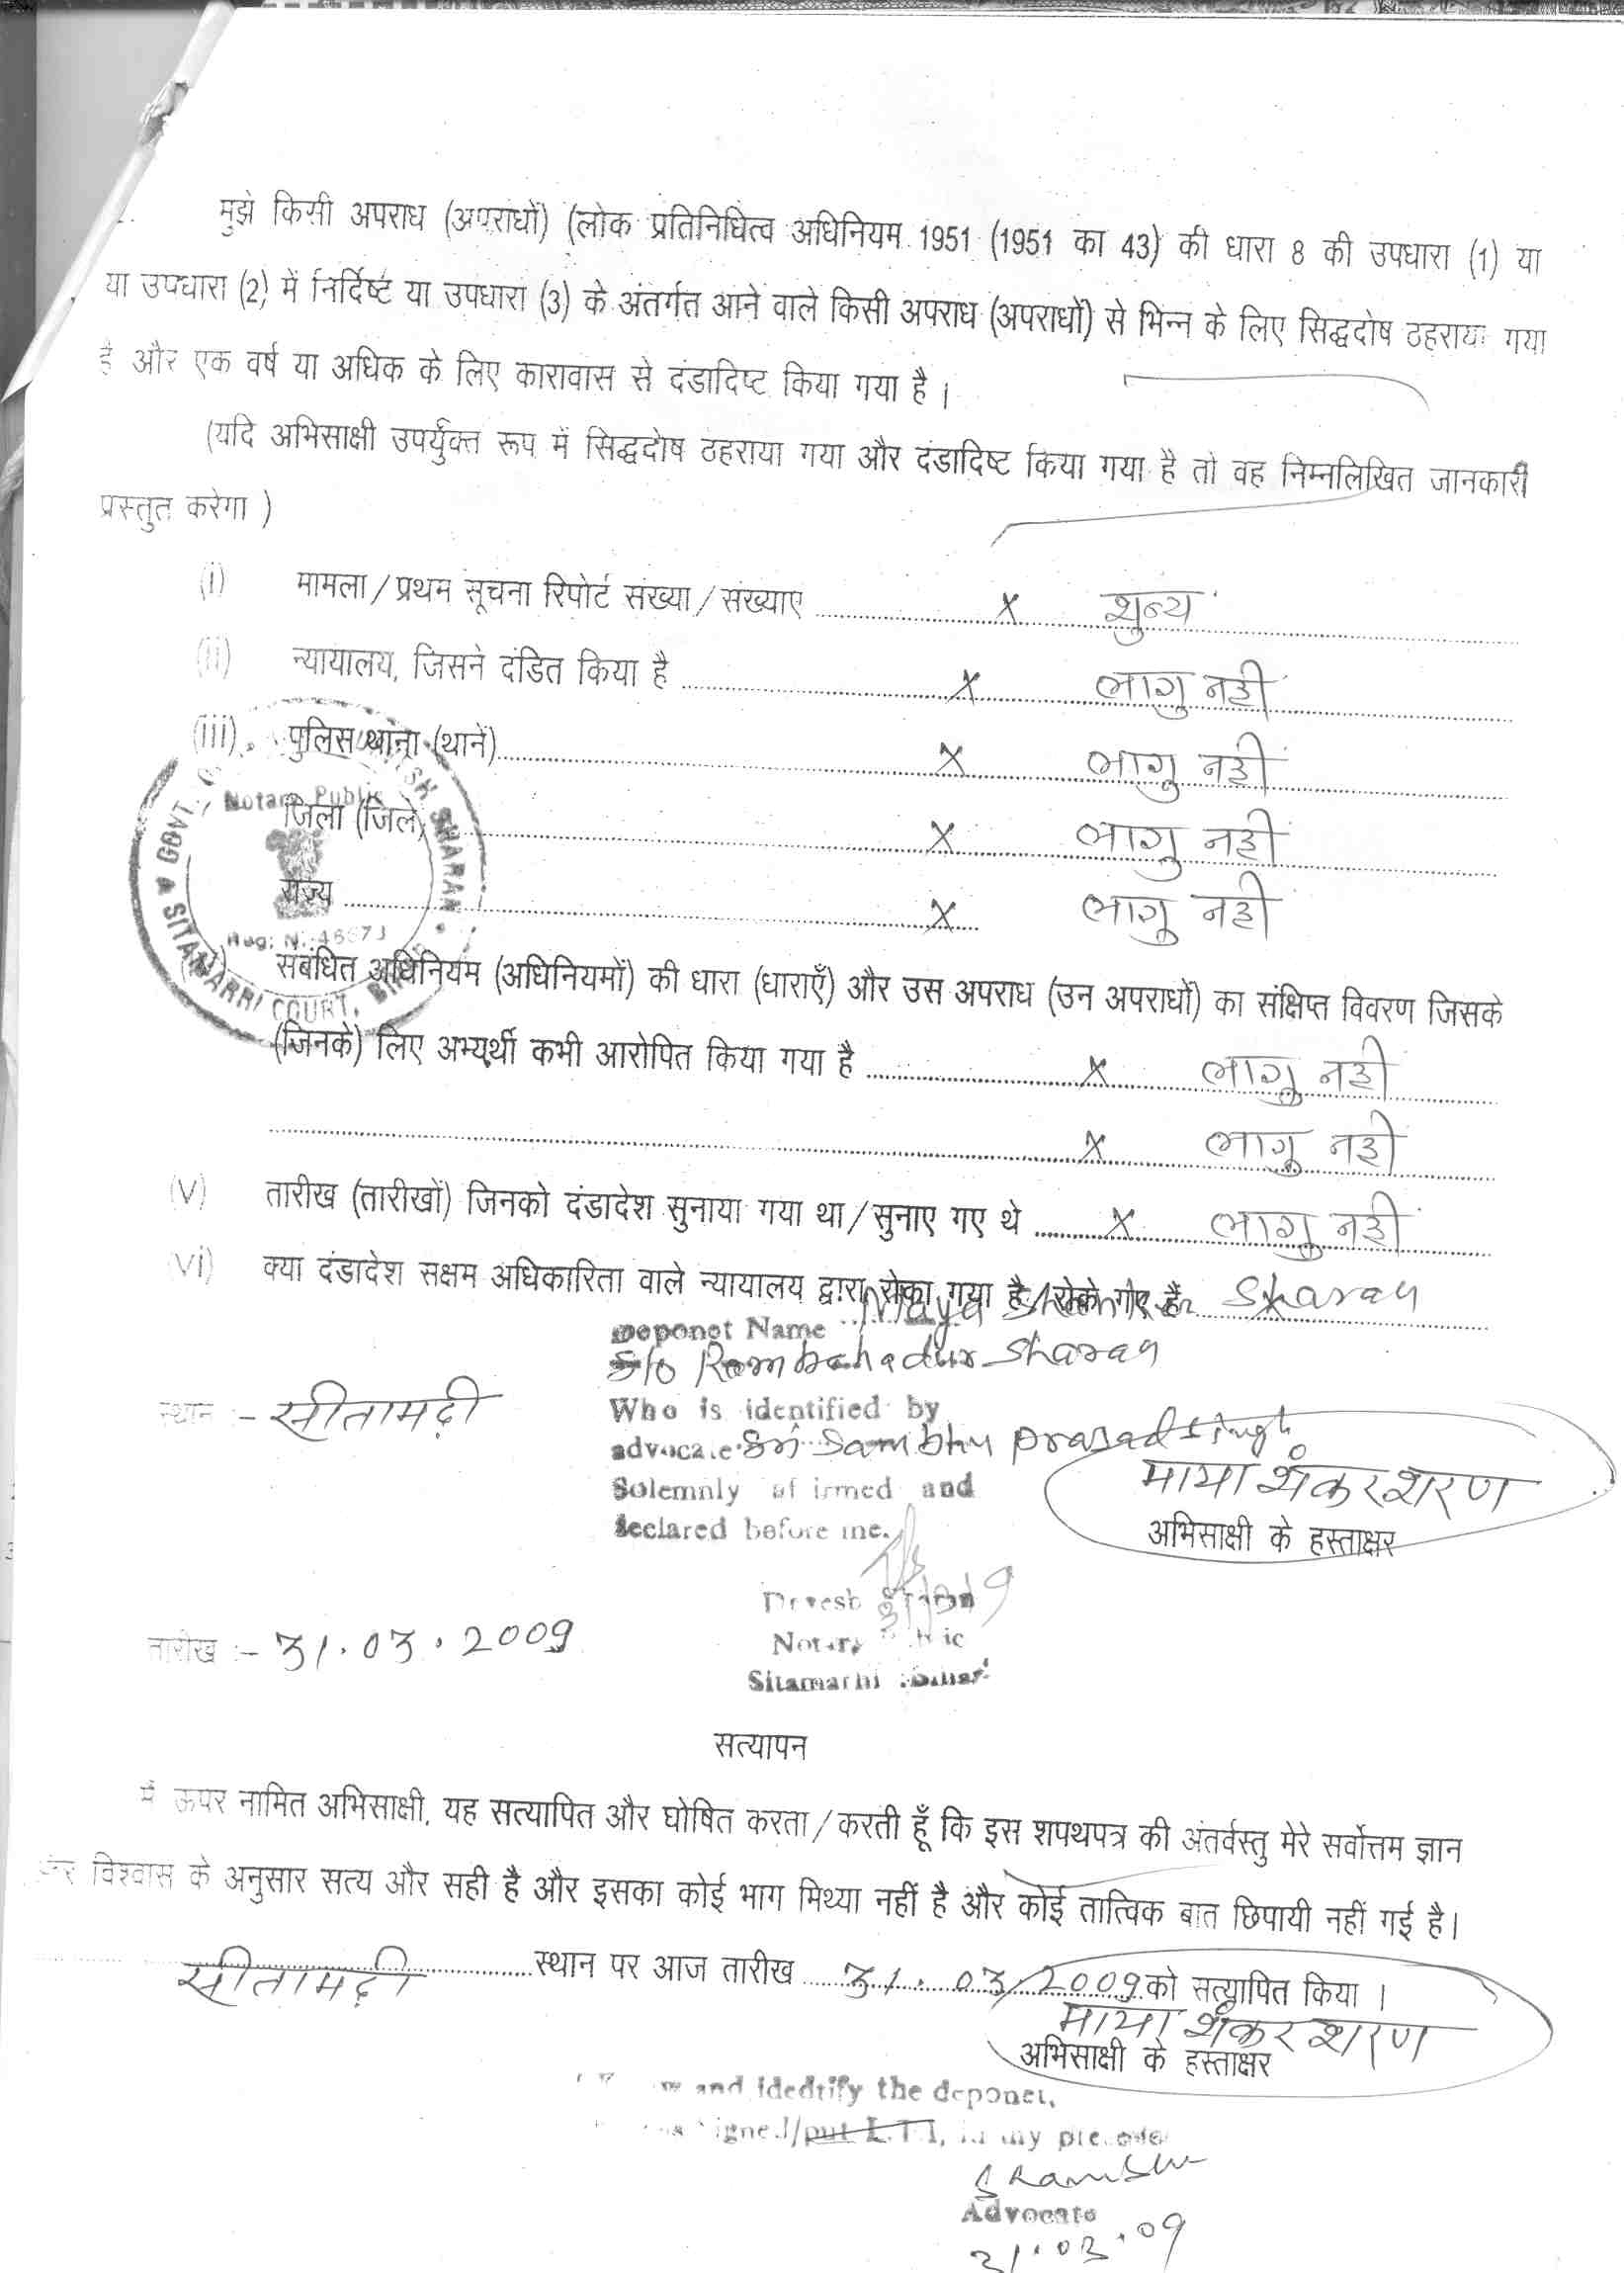 मुझे किसी अपराध (अपराधों) (लोक प्रतिनिधित्व अधिनियम 1951 (1951 का 43) की धारा 8 की उपधारा (1) या
या उपधारा (2) में निर्दिष्ट या उपधारा (3) के अंतर्गत आने वाले किसी अपराध (अपराधों) से भिन्न के लिए सिद्धदोष ठहराया गया
है और एक वर्ष या अधिक के लिए कारावास से दंडादिष्ट किया गया है ।
(यदि अभिसाक्षी उपर्युक्त रूप में सिद्धदोष ठहराया गया और दंडादिष्ट किया गया है तो वह निम्नलिखित जानकारी
प्रस्तुत करेगा )
(i) मामला/प्रथम सूचना रिपोर्ट संख्या/संख्याए ........ X शुन्य
(ii) न्यायालय, जिसने दंडित किया है ........ X लागु नही
(iii) पुलिस थाना (थानें) ........ X लागु नही
जिला (जिले) ........ X लागु नही
राज्य ........ X लागु नही
GOVT. SHARAN SITAMARHI COURT,
Notary Public
संबंधित अधिनियम (अधिनियमों) की धारा (धाराएँ) और उस अपराध (उन अपराधों) का संक्षिप्त विवरण जिसके
(जिनके) लिए अभ्यर्थी कभी आरोपित किया गया है ........ X लागु नही
........ X लागु नही
(v) तारीख (तारीखों) जिनको दंडादेश सुनाया गया था/सुनाए गए थे ........ X लागु नही
(vi) क्या दंडादेश सक्षम अधिकारिता वाले न्यायालय द्वारा रोका गया है/रोके गए हैं ........ X
Deponet Name Maya Shanker Sharan
S/o Rambahadur Sharan
स्थान :- सीतामढ़ी
Who is identified by
advocate Sri Sambhu Prasad Singh
Solemnly affirmed and
declared before me.
माया शंकर शरण
अभिसाक्षी के हस्ताक्षर
Devesh Sharan
Notary Public
Sitamarhi Bihar
तारीख :- 31.03.2009
सत्यापन
मैं ऊपर नामित अभिसाक्षी, यह सत्यापित और घोषित करता/करती हूँ कि इस शपथपत्र की अंतर्वस्तु मेरे सर्वोत्तम ज्ञान
और विश्वास के अनुसार सत्य और सही है और इसका कोई भाग मिथ्या नहीं है और कोई तात्विक बात छिपायी नहीं गई है।
सीतामढ़ी ........ स्थान पर आज तारीख 31.03.2009 को सत्यापित किया ।
माया शंकर शरण
अभिसाक्षी के हस्ताक्षर
and idedtify the deponet,
signed/put L.T.I, in my
Shambhu
Advocate
31.03.09